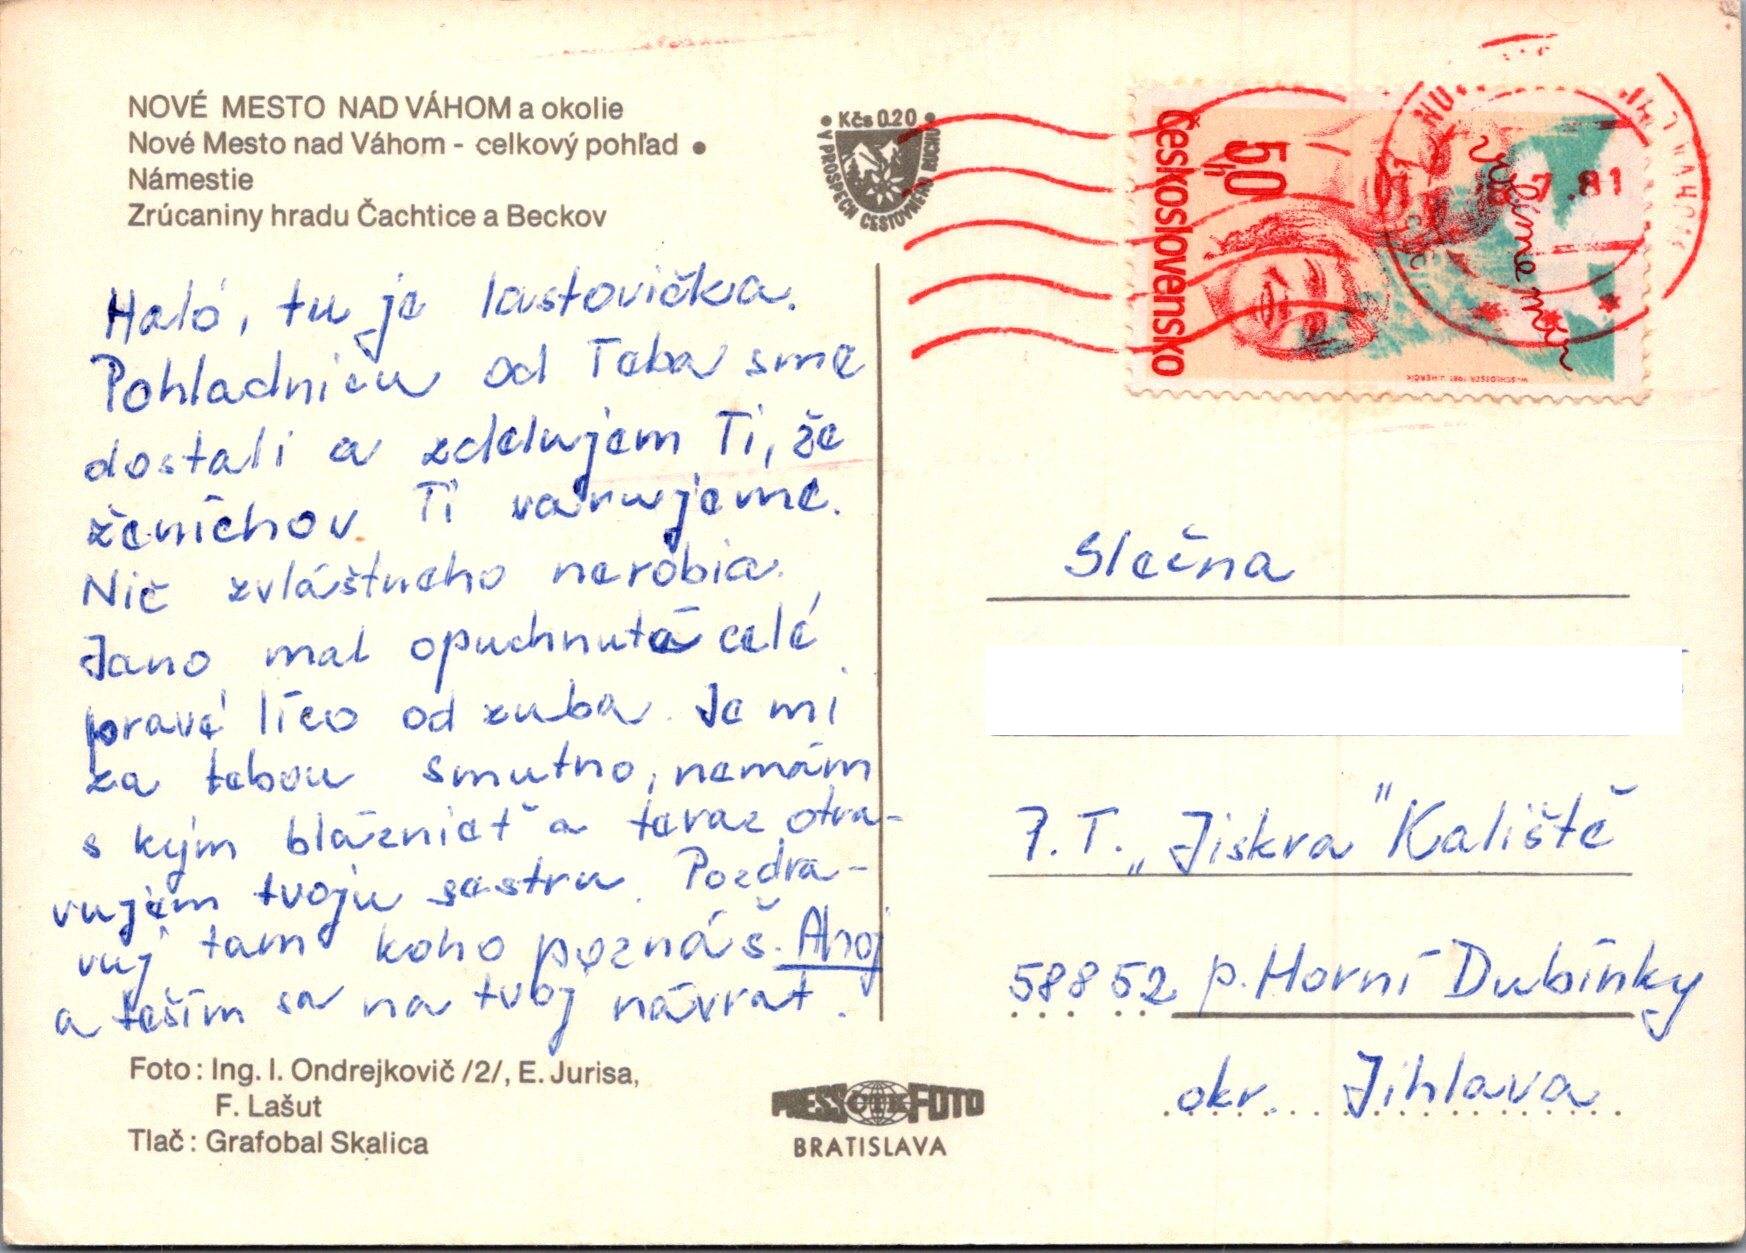 NOVÉ MESTO NAD VÁHOM a okolie
Nové Mesto nad Váhom - celkový pohľad •
Námestie
Zrúcaniny hradu Čachtice a Beckov
• Kčs 0.20 •
V PROSPECH CESTOVNÉHO RUCHU
Československo
50
7.81
Haló, tu je lastovička.
Pohladnicu od Teba sme
dostali a zdelujem Ti, že
ženíchov Ti varujeme.
Nič zvláštneho nerobia.
Jano mal opuchnuté celé
pravé líco od zuba. Je mi
za tebou smutno, nemám
s kým blázniet a teraz otra-
vujem tvoju sestru. Pozdra-
vuj tam koho poznáš. Ahoj
a teším sa na tvoj návrat.
Slečna
P.T. „Jiskra" Kaliště
58852 p. Horní Dubínky
okr. Jihlava
Foto: Ing. I. Ondrejkovič /2/, E. Jurisa,
F. Lašut
Tlač: Grafobal Skalica
PRESSFOTO
BRATISLAVA